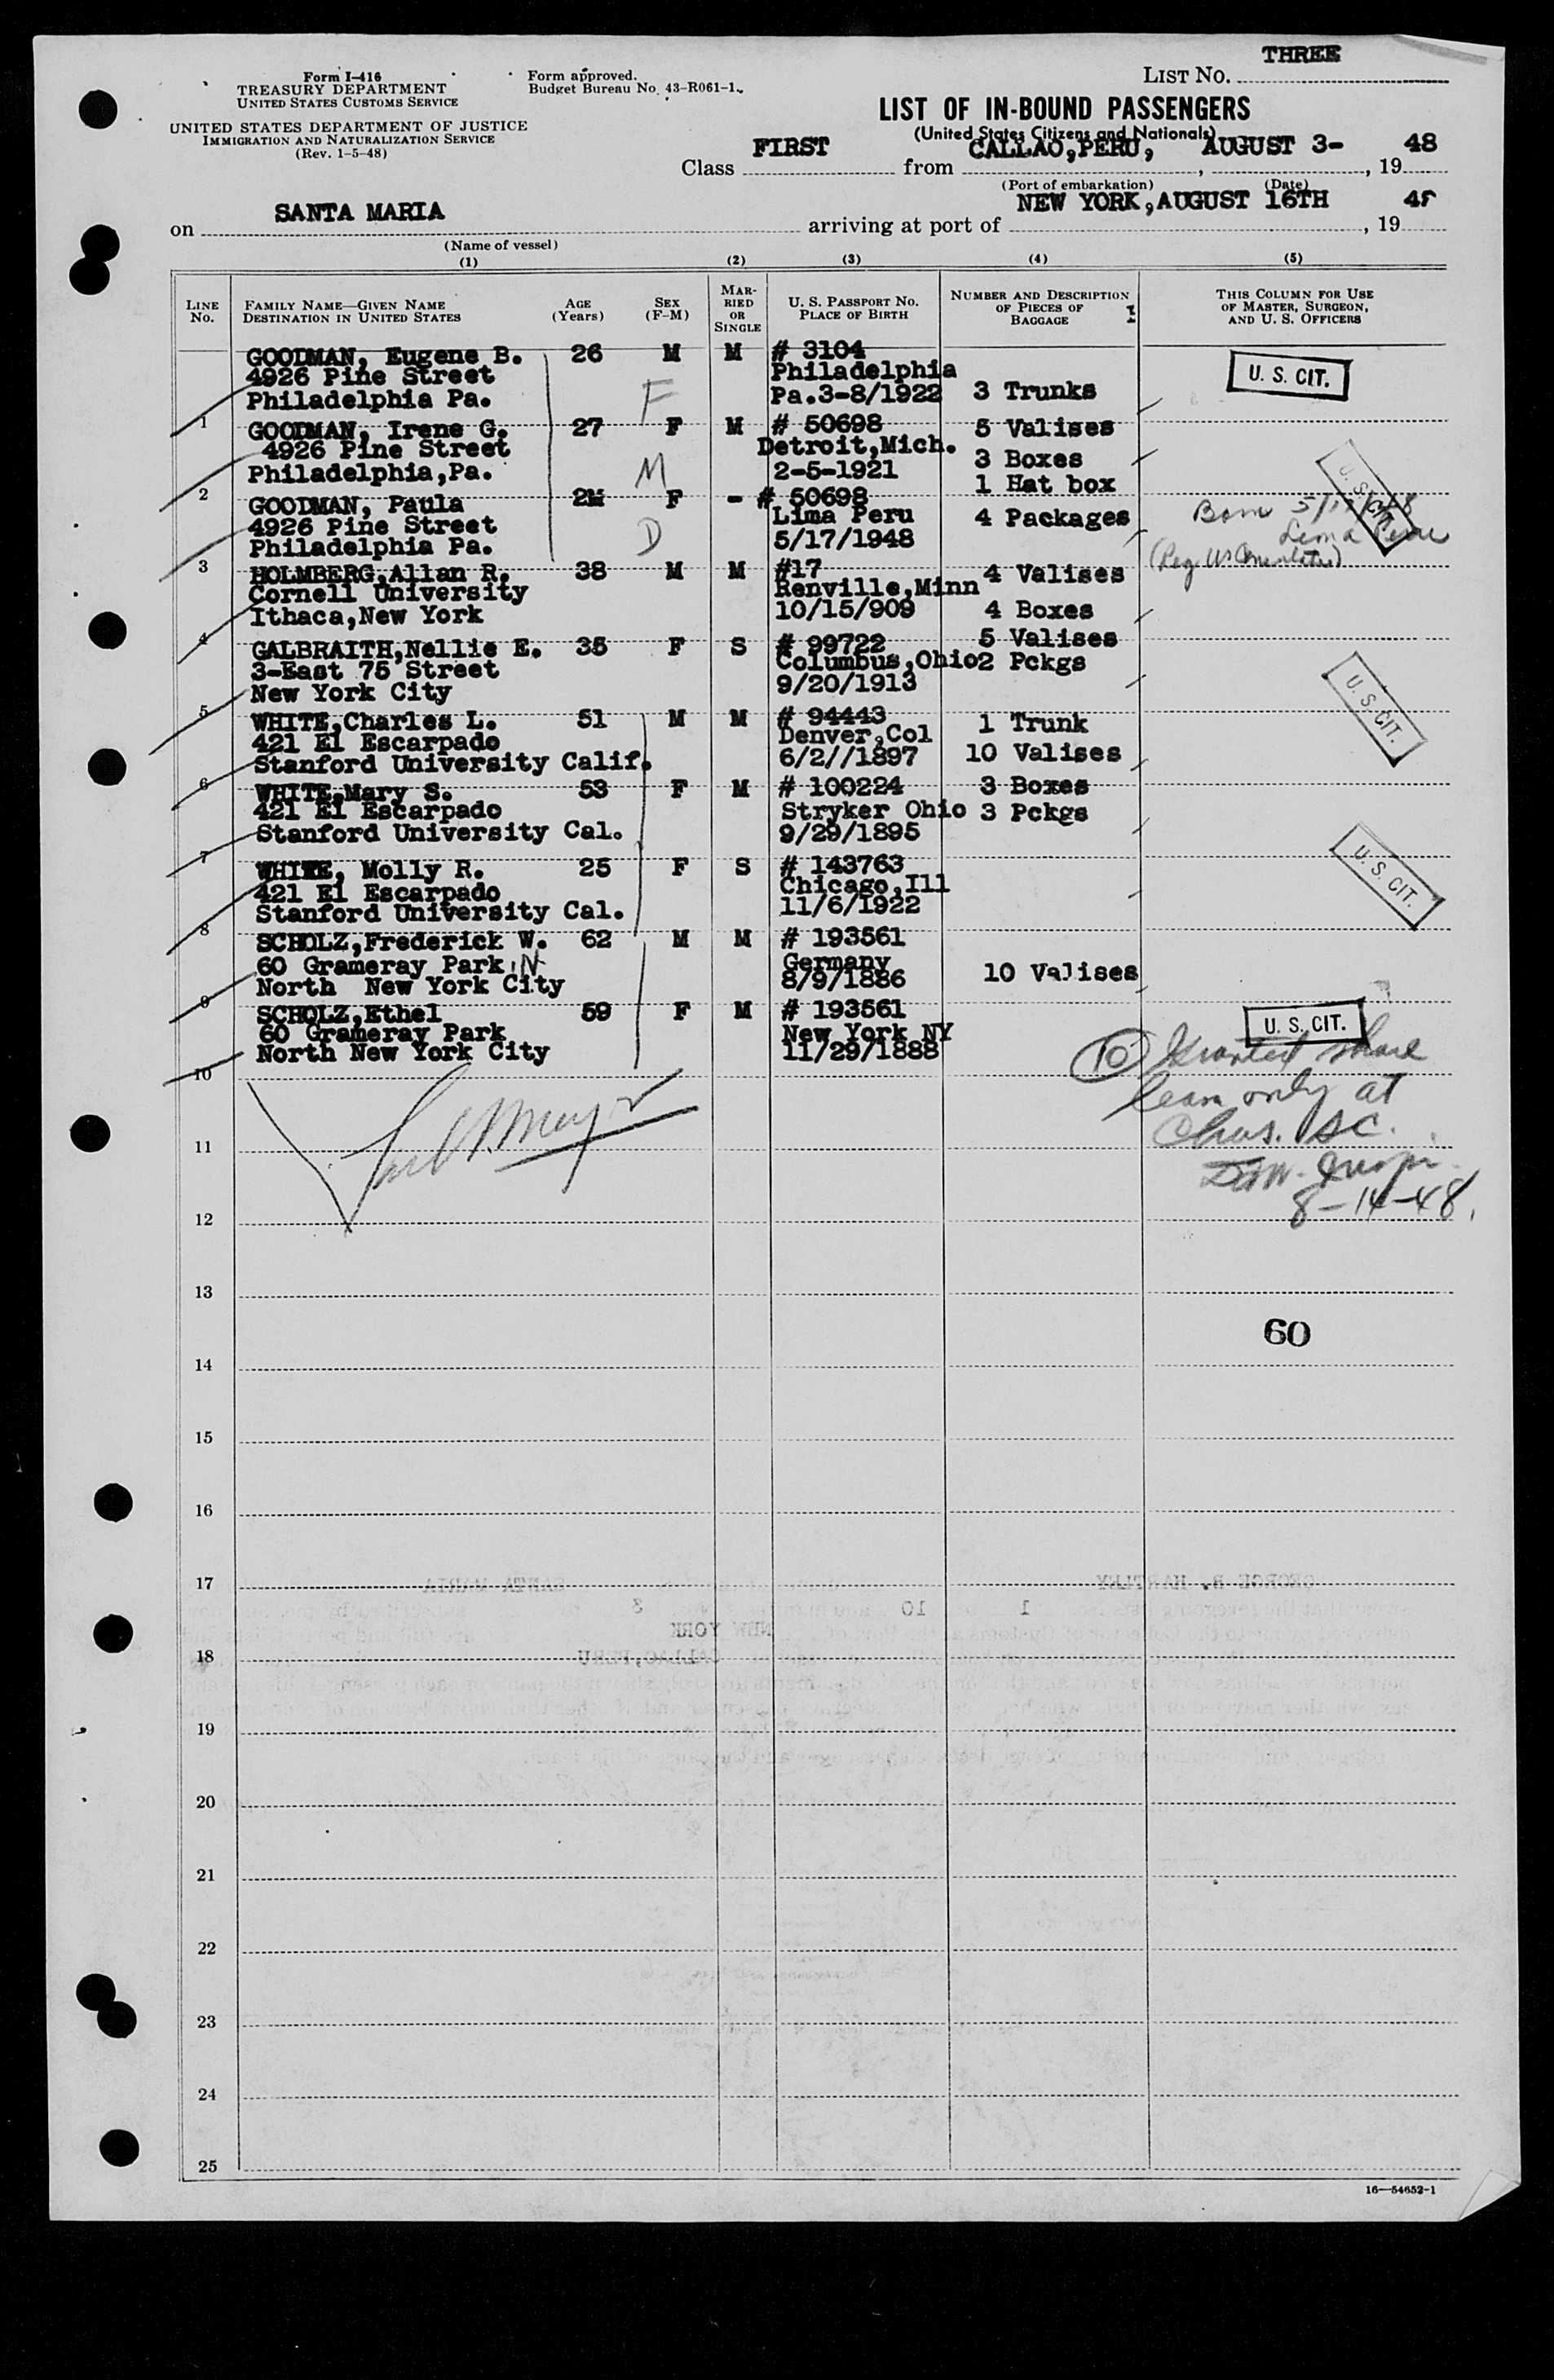 THREE
LIST NO.
Form I-416
TREASURY DEPARTMENT
UNITED STATES CUSTOMS SERVICE
Form approved.
Budget Bureau No. 43-R061-1.
UNITED STATES DEPARTMENT OF JUSTICE
IMMIGRATION AND NATURALIZATION SERVICE
(Rev. 1-5-48)
LIST OF IN-BOUND PASSENGERS
(United States Citizens and Nationals)
Class FIRST from CALLAO,PERU, AUGUST 3- , 19 48
(Port of embarkation) (Date)
on SANTA MARIA arriving at port of NEW YORK,AUGUST 16TH , 19 48
(Name of vessel)
(1) (2) (3) (4) (5)
LINE NO.
FAMILY NAME—GIVEN NAME
DESTINATION IN UNITED STATES
AGE (Years)
SEX (F-M)
MARRIED OR SINGLE
U. S. PASSPORT NO.
PLACE OF BIRTH
NUMBER AND DESCRIPTION OF PIECES OF BAGGAGE
THIS COLUMN FOR USE OF MASTER, SURGEON, AND U. S. OFFICERS
GOODMAN, Eugene B. 26 M M # 3104
4926 Pine Street Philadelphia U. S. CIT.
Philadelphia Pa. F Pa.3-8/1922 3 Trunks
1 GOODMAN, Irene G. 27 F M # 50698 5 Valises
4926 Pine Street Detroit,Mich. 3 Boxes
Philadelphia,Pa. M 2-5-1921 1 Hat box
2 GOODMAN, Paula 2M F - # 50698 U. S. CIT.
4926 Pine Street Lima Peru 4 Packages Born 5/17/48
Philadelphia Pa. D 5/17/1948 Lima Peru
3 HOLMBERG,Allan R. 38 M M #17 4 Valises
Cornell University Renville,Minn
Ithaca,New York 10/15/909 4 Boxes
4 GALBRAITH,Nellie E. 35 F S # 99722 5 Valises
3-East 75 Street Columbus,Ohio 2 Pckgs
New York City 9/20/1913 U. S. CIT.
5 WHITE,Charles L. 51 M M # 94443 1 Trunk
421 El Escarpado Denver,Col
Stanford University Calif. 6/2//1897 10 Valises
6 WHITE,Mary S. 53 F M # 100224 3 Boxes
421 El Escarpado Stryker Ohio 3 Pckgs
Stanford University Cal. 9/29/1895
7 WHITE, Molly R. 25 F S # 143763 U. S. CIT.
421 El Escarpado Chicago,Ill
Stanford University Cal. 11/6/1922
8 SCHOLZ,Frederick W. 62 M M # 193561
60 Grameray Park N Germany 10 Valises
North New York City 8/9/1886
9 SCHOLZ,Ethel 59 F M # 193561 U. S. CIT.
60 Grameray Park New York NY
North New York City 11/29/1888
10 (10) Granted shore
leave only at
11 Chas. SC.
8-14-48.
12
13
60
14
15
16
17
18
19
20
21
22
23
24
25
16—54652-1